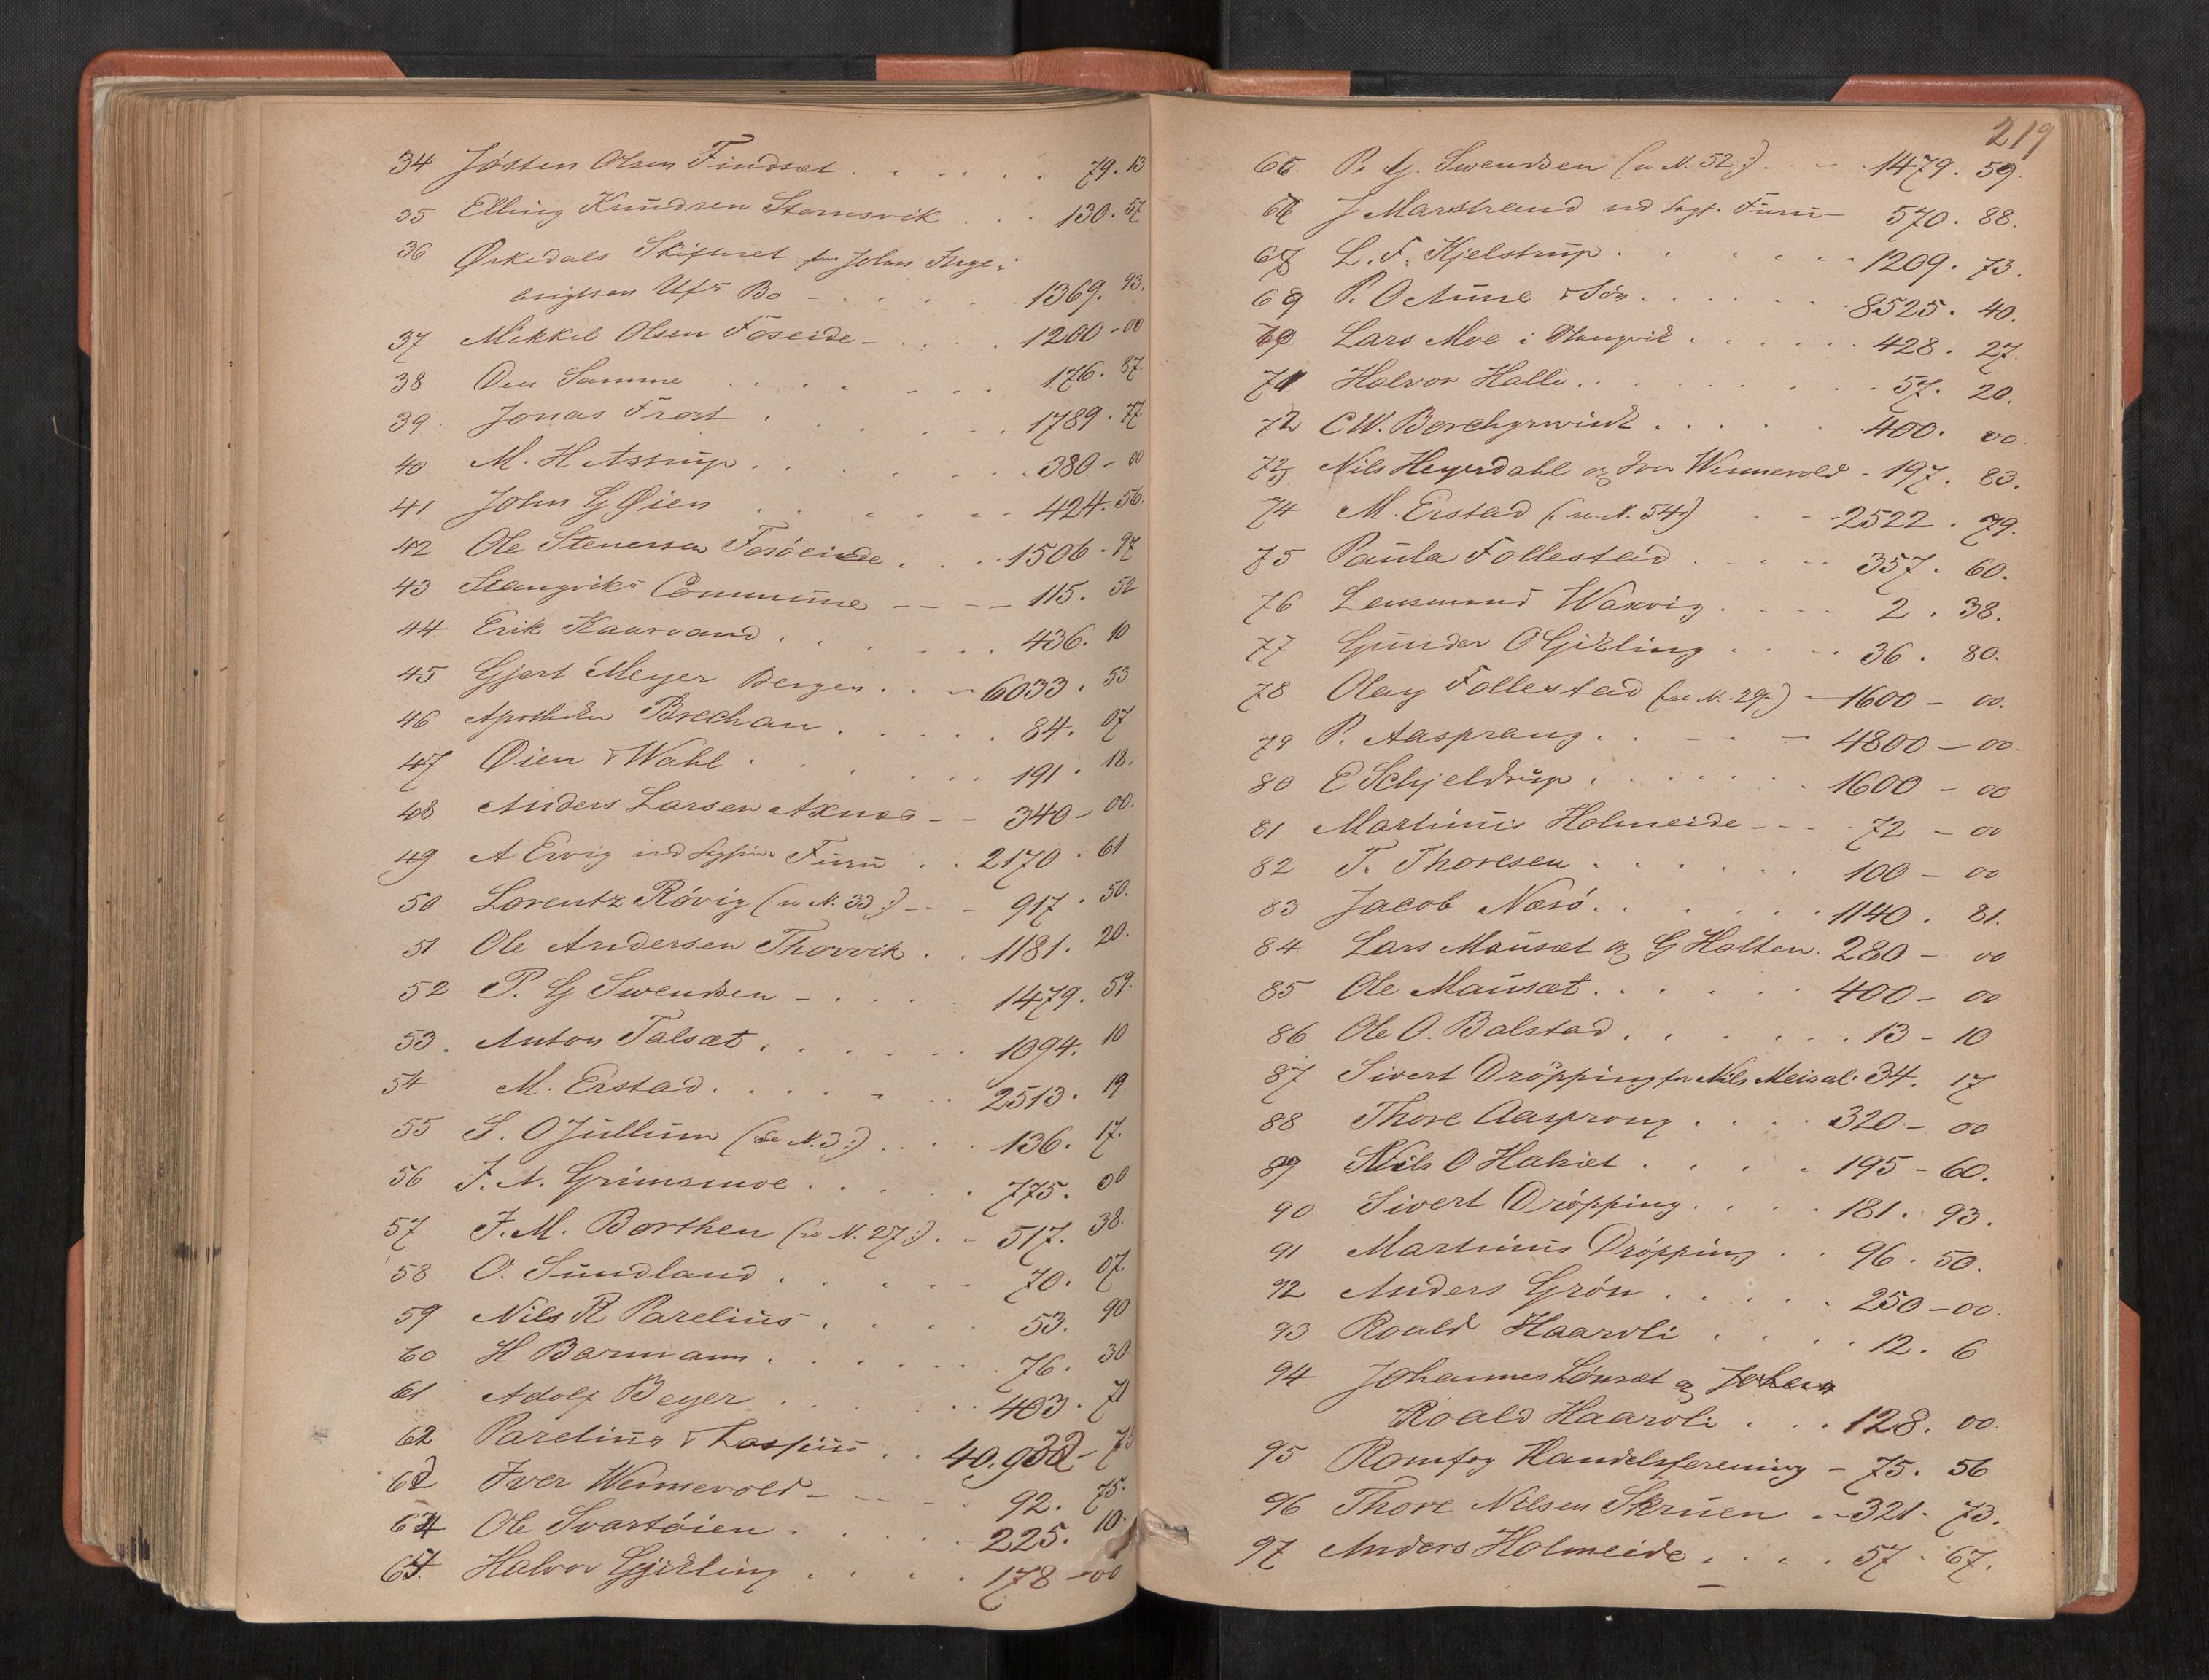 34 Jósten Olsen Findset . . . . . . 79. 13
35 Elling Knudsen Stemsvik . . . 130. 57
36 Ørkedals Skifteret for John Inge-
brigtsen Ufs Bo - . . . . . 1369. 93.
37 Mikkel Olsen Foseide - . . . 1200 - 00
38 Den Samme . . . . . . 176. 87.
39. Jonas Frost . . . . . . 1789. 77.
40 M. H Astrup . . . . . . 380 - 00
41 John G Øien . . . . . . 424. 56.
42 Ole Stenersen Fosóeide . . . 1506. 97
43 Stangviks Commune - - - - 115. 52
44. Erik Kaarvand . . . . . . 436. 10
45 Gjert Meyer Bergen . . - 6033. 53
46 Apotheker Brechan . . . . . 84. 07
47 Øien & Wahl . . . . . . 191. 18.
48 Anders Larsen Axnes - - 340 - 00.
49 A Ervig ved Furu . . 2170. 61
50 Lorentz Róvig (se N. 33:) - - - 917. 50.
51 Ole Andersen Thorvik . . 1181. 20.
52 P. G Swendsen - . . . . 1479. 59.
53. Anton Talsæt . . . . . . 1094. 10
54 M. Erstad . . . . . . 2513. 19.
55 S. O Jullum (se N. 3:) . . . . 136. 17.
56 J. N. Grimsmoe . . . . . 775. 00
57 F. M. Borthen (se N. 27:) . . 517. 38.
58 O. Sundland . . . . . 70. 07.
59 Nils R Parelius . . . . 53. 90
60 H Barmann . . . . . . 76. 30.
61 Adolf Beyer . . . . . . 403. 71
62 Parelius & . . 40.932 - 75
63 Iver Wennevold - - - - 92. 75.
64 Ole Svartóien . . . . 225. 10.
65. Halvor Gjikling . . . . 178 - 00
219
66. P. G. Swendsen (se N. 52:) . - - 1479. 59.
67 J Marstrand ved Sagf. Furu - 570. 88.
68 L. F. Kjelstrup . . . . . . 1209. 73.
69 P. O Aune & Són . . . . . . 8525. 40.
70 Lars Moe i Stangvik . . . . . . 428. 27.
71 Halvor Halle . . . . . . . . 57. 20.
72 C W. Borchgrwink . . . . . 400. 00
73 Nils Heyerdahl og Iver Wennevold - 197. 83.
74 M. Erstad (:se N. 54:) - - 2522. 79.
75 Paula Follestad . . . . 357. 60.
76 Lensmand Waxvig . . . . 2. 38.
77 Gunder O Gikling . . . . 36. 80.
78 Olay Follestad (se N. 29:) - 1600 - 00.
79 P. Aasprang . . - - - 4800 - 00.
80 E Schjeldrup . . . . . . 1600 - 00
81. Martinus Holmeide - - - 72 - 00
82 T. Thoresen . . . . . . 100 - 00
83 Jacob Næsó . . . . . . 1140. 81.
84 Lars Mauset og G Halten. 280 - 00
85 Ole Mauset . . . . . . 400 - 00
86 Ole O. Bolstad . . . . . . 13 - 10
87 Sivert Dröpping for Nils Meisal: 34. 17
88 Thore Aasprong . . . . 320 - 00
89 Nils O Halset . . . . 195 - 60.
90 Sivert Drópping . . . . 181. 93.
91 Martinus Drópping . . 96. 50.
92 Anders Grón . . . . . 250 - 00.
93 Roald Haaroli . . . . 12. 6
94 Johannes Lónset og Johan
Roald Haaroli . . . 128. 00
95 Romfog Handelsforening - 75. 56
96 Thore Nilsen Skruen . - 321. 73.
97 Anders Holmeide . . . . 57. 67.